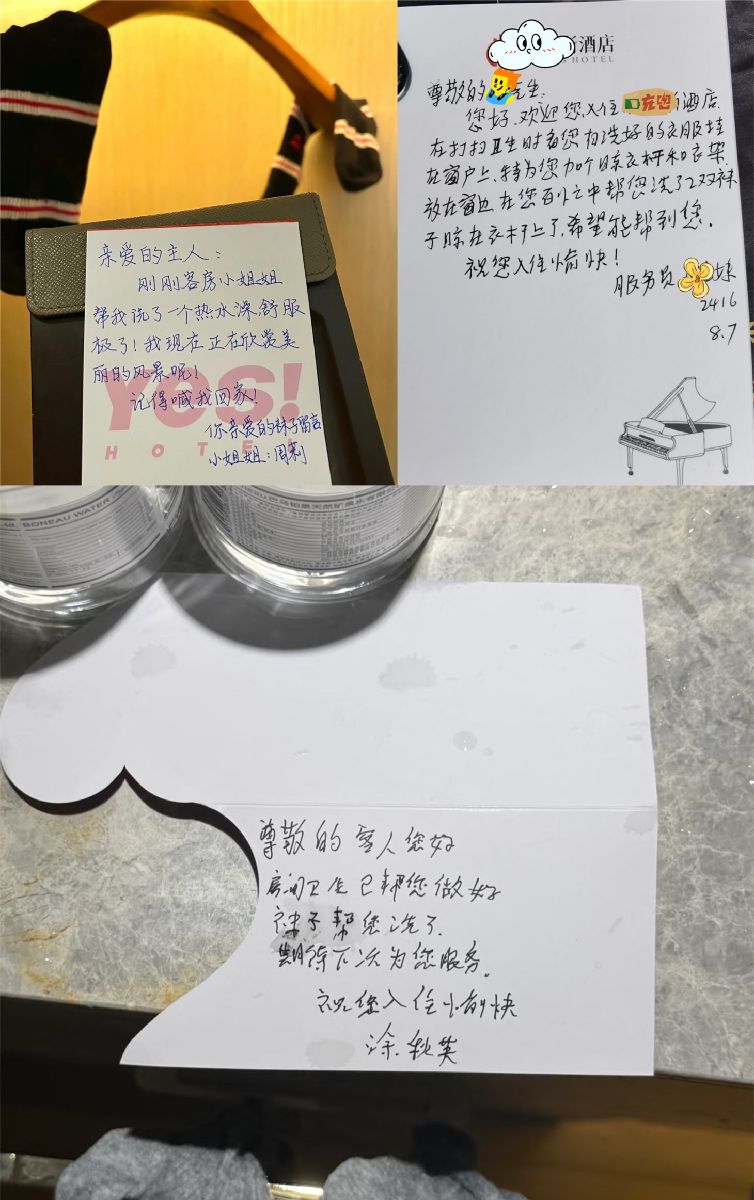 亲爱的主人:
刚刚客房小姐姐
帮我洗了一个热水澡舒服
极了!我现在正在欣赏美
丽的风景呢!
记得喊我回家!
你亲爱的袜子留言
小姐姐:周莉
Yes!
HOTEL
酒店
HOTEL
尊敬的 先生:
您好,欢迎您入住 酒店
在打扫卫生时看您有洗好的衣服挂
在窗户上,特为您加个晾衣杆和衣架
放在窗边,在您百忙之中帮您洗了2双袜
子晾在衣杆上了,希望能帮到您。
祝您入住愉快!
服务员 妹
2416
8.7
BONEAU WATER
尊敬的客人您好
房间卫生已帮您做好
袜子帮您洗了.
期待下次为您服务。
祝您入住愉快
涂秋英